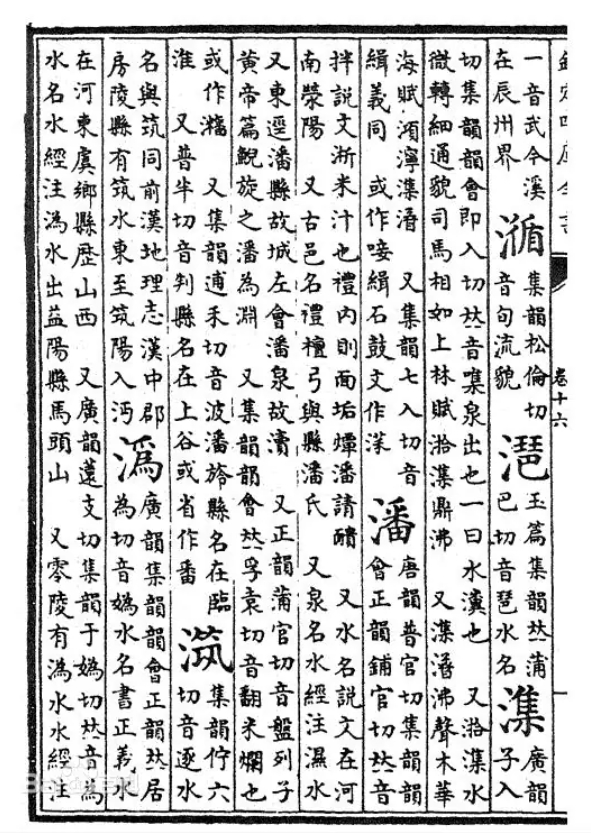 卷十六
一音武今溪
在辰州界
集韻松倫切
音旬流貌
潖
玉篇集韻𠀤蒲
巴切音琶水名
潗
廣韻
子入
切集韻韻會即入切𠀤音喋泉出也一曰水瀵也 又湁潗水
微轉細通貌司馬相如上林賦湁潗鼎沸 又潗濳沸聲木華
海賦澒濘潗 又集韻七入切音
緝義同 或作唼緝石鼓文作
潘
唐韻普官切集韻韻
會正韻鋪官切𠀤音
拌說文淅米汁也禮內則面垢燂潘請靧 又水名說文在河
南滎陽 又古邑名禮檀弓與縣潘氏 又泉名水經注濕水
又東逕潘縣故城左會潘泉故瀆 又正韻蒲官切音盤列子
黃帝篇鯢旋之潘為淵 又集韻韻會𠀤孚袁切音翻米爛也
或作 又集韻逋禾切音波潘旍縣名在臨
淮 又普半切音判縣名在上谷或省作番
集韻佇六
切音逐水
名與筑同前漢地理志漢中郡
房陵縣有筑水東至筑陽入沔
潙
廣韻集韻韻會正韻𠀤居
為切音嬀水名書正義水
在河東虞鄉縣歷山西 又廣韻薳支切集韻于嬀切𠀤音為
水名水經注潙水出益陽縣馬頭山 又零陵有潙水水經注